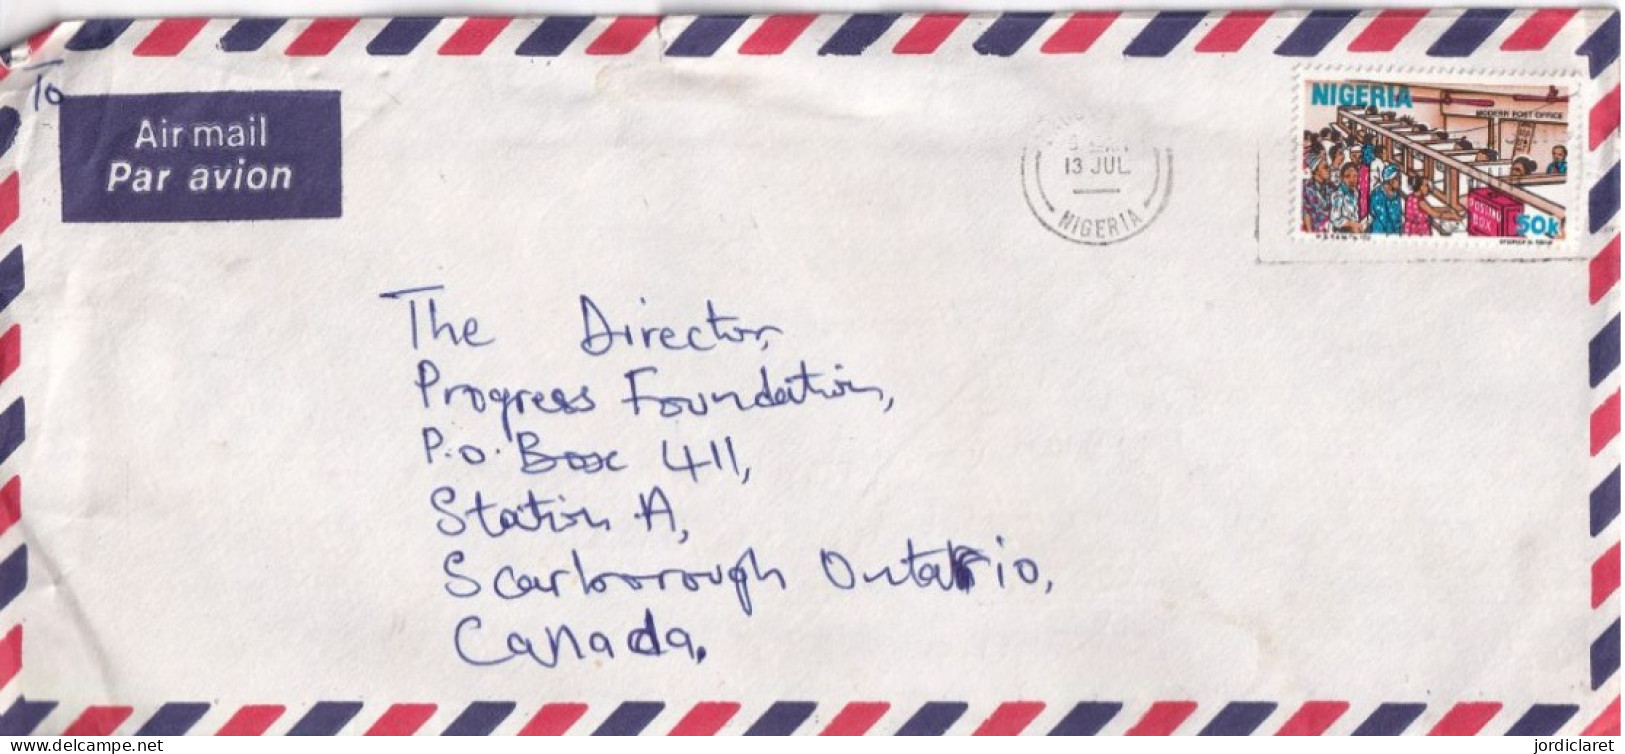 To
Air mail
Par avion
13 JUL
NIGERIA
NIGERIA
MODERN POST OFFICE
POSTING
BOX
50k
The Director,
Progress Foundation,
P.O. Box 411,
Station A,
Scarborough Ontario,
Canada.
delcampe.net
jordiclaret